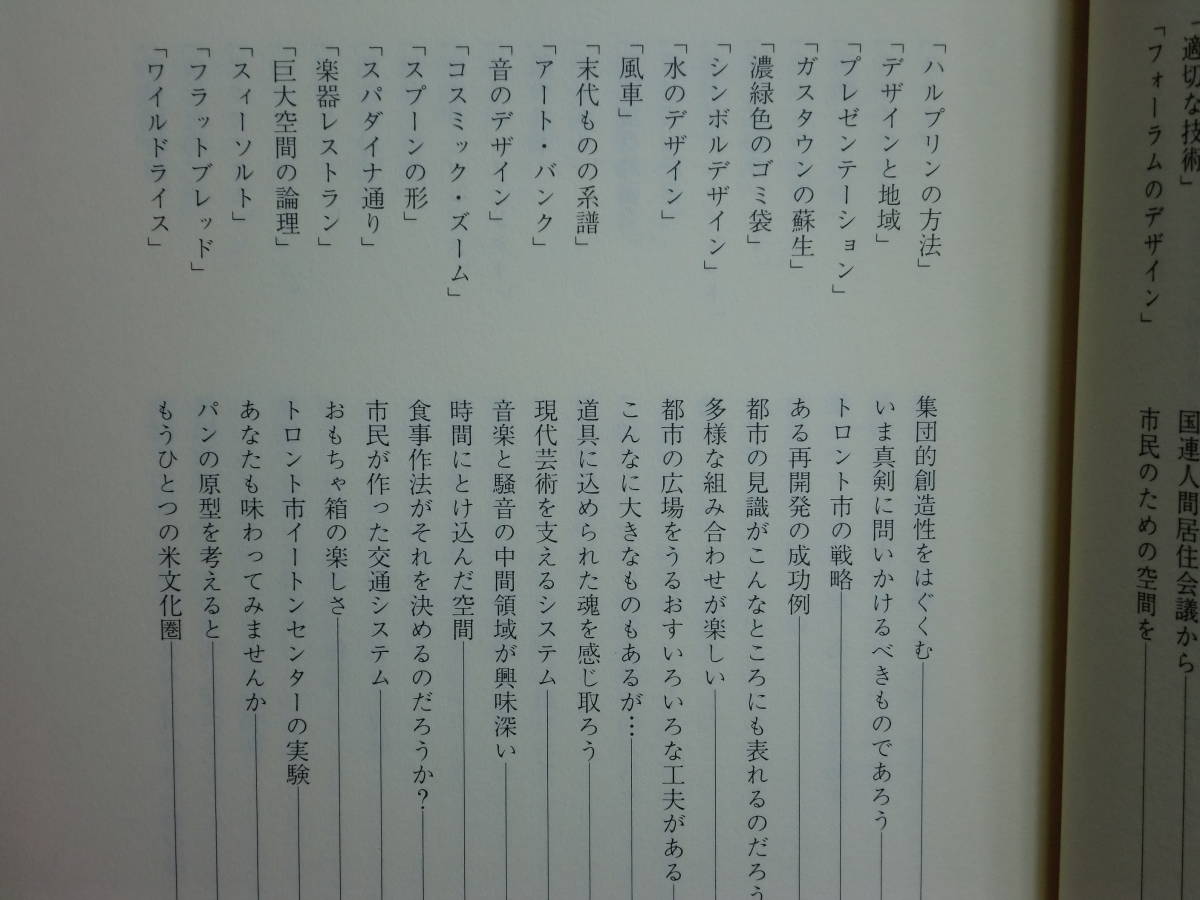 「適切な技術」
国連人間居住会議から
「フォーラムのデザイン」
市民のための空間を
「ハルプリンの方法」
集団的創造性をはぐくむ
「デザインと地域」
いま真剣に問いかけるべきものであろう
「プレゼンテーション」
トロント市の戦略
「ガスタウンの蘇生」
ある再開発の成功例
「濃緑色のゴミ袋」
都市の見識がこんなところにも表れるのだろう
「シンボルデザイン」
多様な組み合わせが楽しい
「水のデザイン」
都市の広場をうるおすいろいろな工夫がある
「風車」
こんなに大きなものもあるが…
「末代ものの系譜」
道具に込められた魂を感じ取ろう
「アート・バンク」
現代芸術を支えるシステム
「音のデザイン」
音楽と騒音の中間領域が興味深い
「コスミック・ズーム」
時間にとけ込んだ空間
「スプーンの形」
食事作法がそれを決めるのだろうか?
「スパダイナ通り」
市民が作った交通システム
「楽器レストラン」
おもちゃ箱の楽しさ
「巨大空間の論理」
トロント市イートンセンターの実験
「スィーソルト」
あなたも味わってみませんか
「フラットブレッド」
パンの原型を考えると
「ワイルドライス」
もうひとつの米文化圏